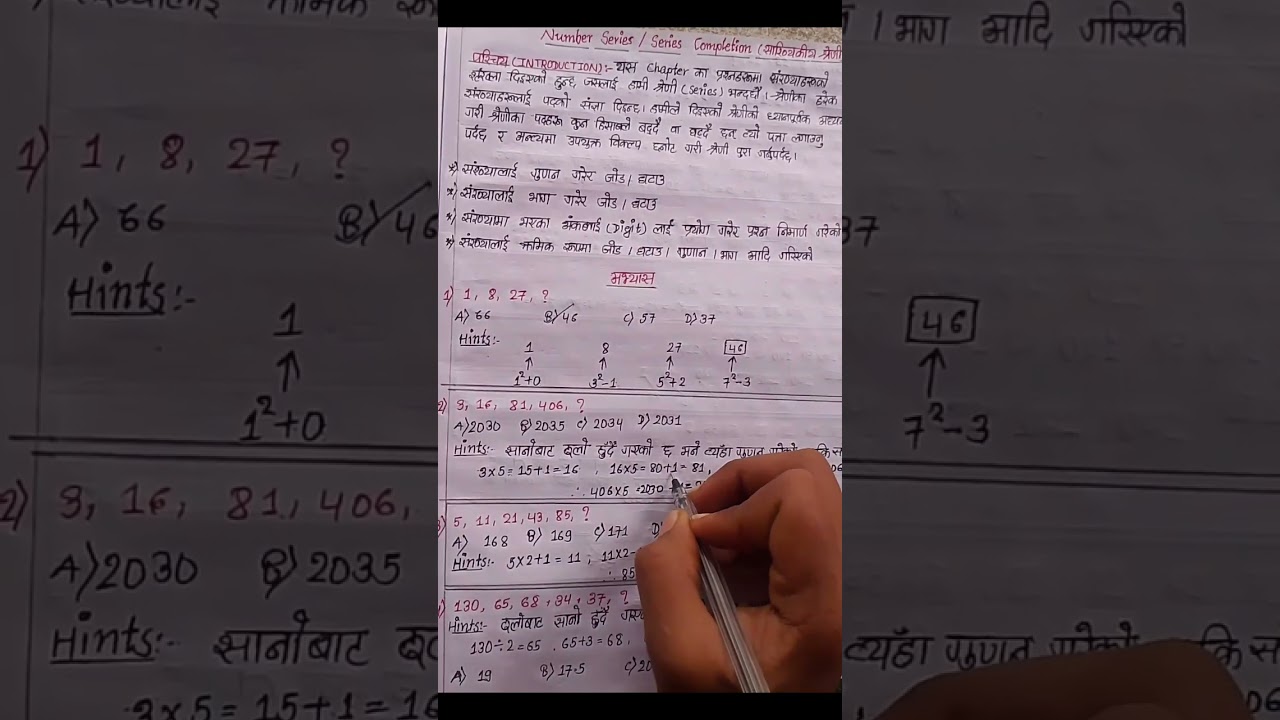 Number Series / Series Completion (सांख्यिकीय श्रेणी
परिचय (INTRODUCTION):- यस Chapter का प्रश्नहरूमा संख्याहरूको
दिइएको हुन्छ जसलाई हामी श्रेणी (Series) भन्दछौं । श्रेणीका हरेक
संख्याहरूलाई पदको संज्ञा दिइन्छ । हामीले दिइएको श्रेणीको ध्यानपूर्वक
गरी श्रेणीका पदहरू कुन हिसाबले बढ्दै वा घट्दै छन् त्यो पत्ता लगाउनु
पर्दछ र अन्त्यमा उपयुक्त विकल्प छनोट गरी श्रेणी पुरा गर्नुपर्दछ ।
*) संख्यालाई गुणन गरेर जोड । घटाउ
*) संख्यालाई भाग गरेर जोड । घटाउ
*) संख्यामा भएका अंकलाई (Digit) लाई प्रयोग गरेर प्रश्न निर्माण गरेको
*) संख्यालाई क्रमिक रूपमा जोड । घटाउ । गुणान । भाग आदि गरिएको
अभ्यास
1) 1, 8, 27, ?
A) 66 B) 46 C) 57 D) 37
Hints:-
1 8 27 46
1²+0 3²-1 5²+2 7²-3
2) 3, 16, 81, 406, ?
A) 2030 B) 2035 C) 2034 D) 2031
Hints:- सानोबाट ठूलो हुँदै गएको छ भने त्यहाँ गुणन गरेको
3×5=15+1=16 , 16×5=80+1=81,
∴ 406×5 =2030
3) 5, 11, 21, 43, 85, ?
A) 168 B) 169 C) 171 D)
Hints:- 5×2+1=11 ; 11×2-
∴ 85
130, 65, 68, 34, 37, ?
Hints:- ठूलोबाट सानो हुँदै
130÷2=65 , 65+3=68,
A) 19 B) 17.5 C) 20